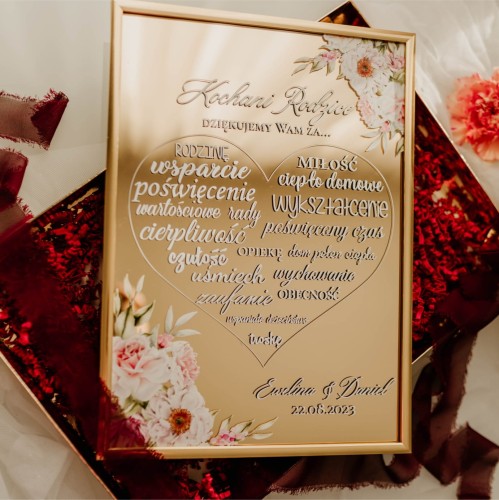 Kochani Rodzice
DZIĘKUJEMY WAM ZA...
RODZINĘ MIŁOŚĆ
wsparcie ciepło domowe
poświęcenie WYKSZTAŁCENIE
wartościowe rady poświęcony czas
cierpliwość OPIEKĘ dom pełen ciepła
czułość wychowanie
uśmiech OBECNOŚĆ
zaufanie
wspaniałe dzieciństwo
troskę
Ewelina & Daniel
22.08.2023